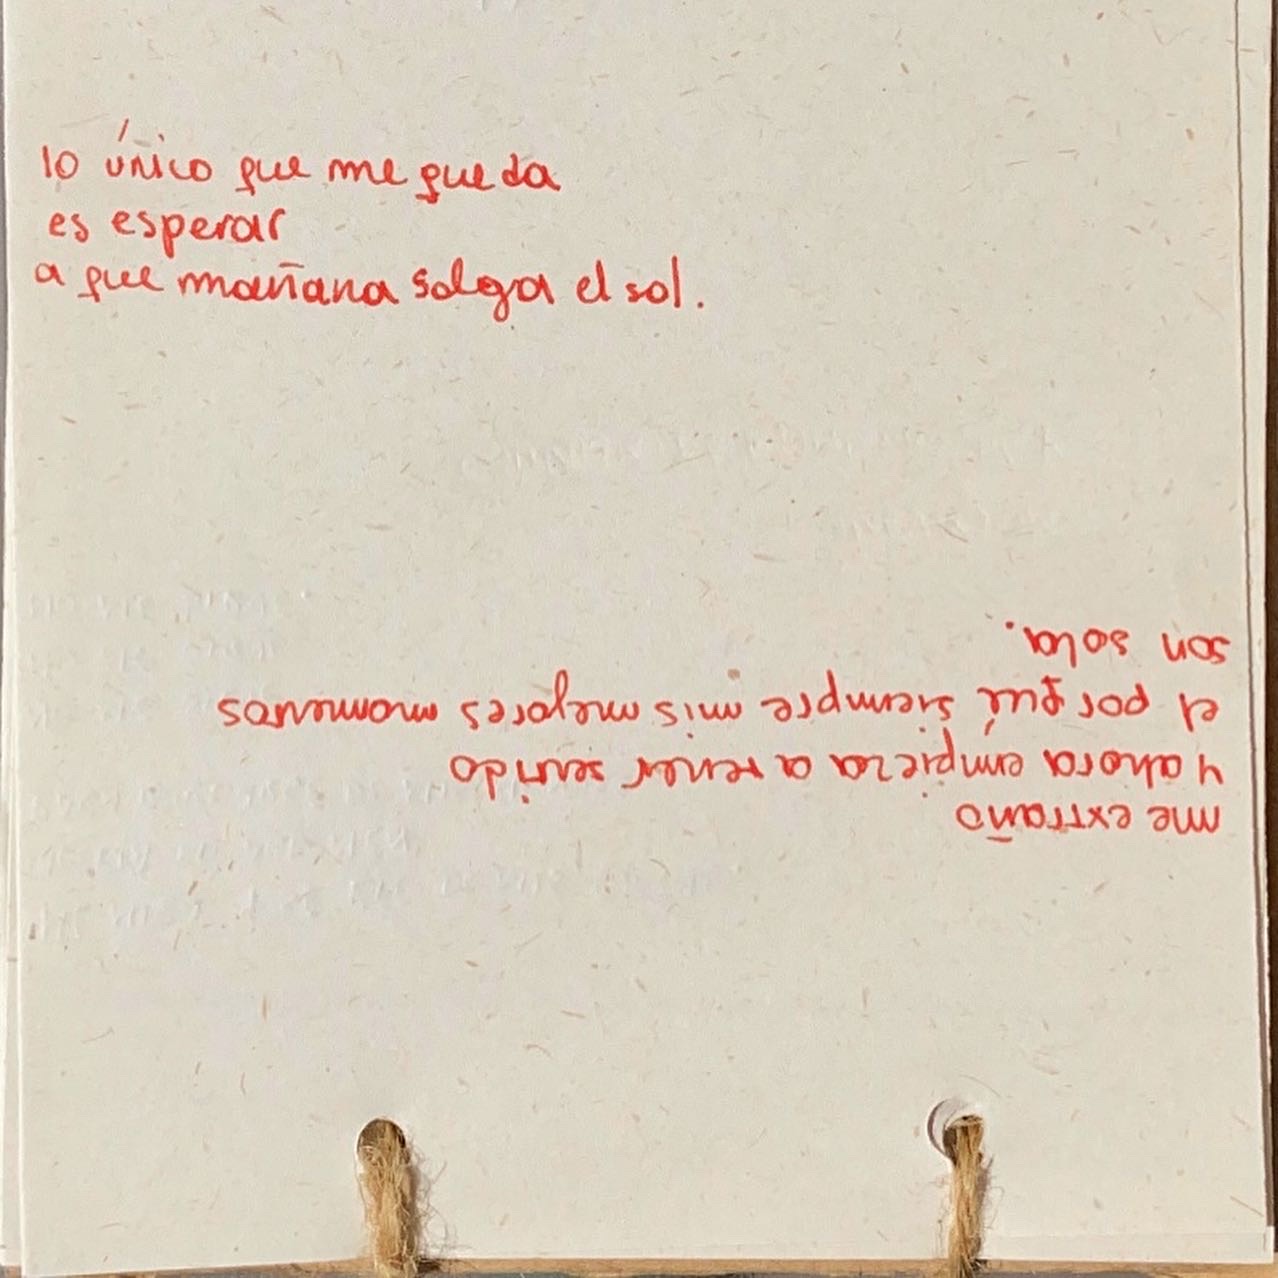 lo único que me queda
es esperar
a que mañana salga el sol.
me extraño
y ahora empieza a tener sentido
el por qué siempre mis mejores momentos
son sola.